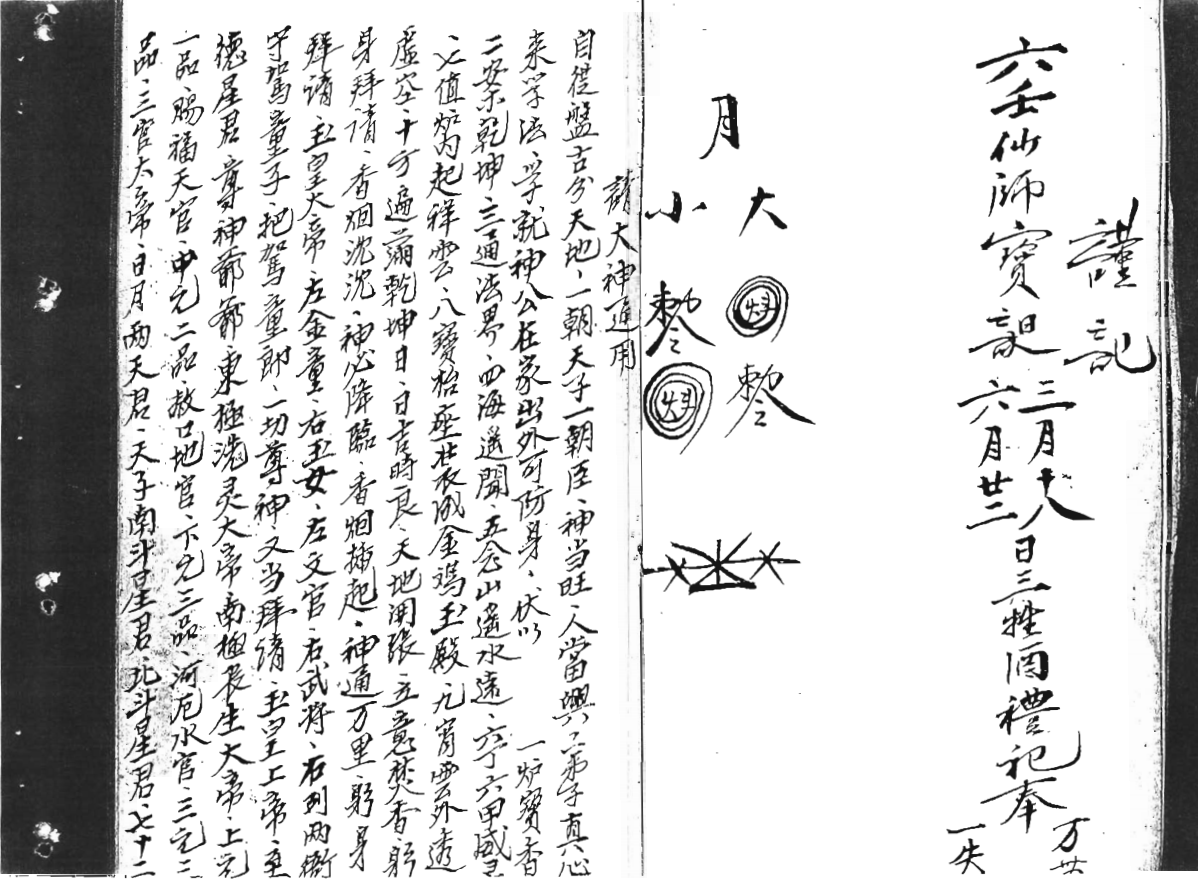 謹記
六壬仙師寶誕 三月十八
六月廿二
日三牲酒禮祀奉
万
一失
月
大
小
敕
敕
請大神通用
自從盤古分天地、一朝天子一朝臣、神当旺、人當興、弟子真心
来学法、学就神公在家出外可防身、伏以 一炉寶香
二案乾坤、三通法界、四海遥聞、五念山遙水遠、六丁六甲威
七值炉内起祥雲、八寶枱座壮衣成金鸡玉殿、九霄雲外透
虛空、十方遍满乾坤日、日吉時良、天地開張、立意焚香、躬
身拜請、香烟沈沈、神必降臨、香烟插起、神通万里、躬身
拜請、玉皇大帝、左金童、右玉女、左文官、右武将、右列两衙
守駕童子、把駕童郎、一切尊神、又当拜請、玉皇上帝、主
德星君、尊神爺爺、東極洗灵大帝、南極長生大帝、上元
一品、賜福天官、中元二品、赦口地官、下元三品、河厄水官、三元三
品、三官大帝、日月两天君、天子南斗星君、北斗星君、七十二